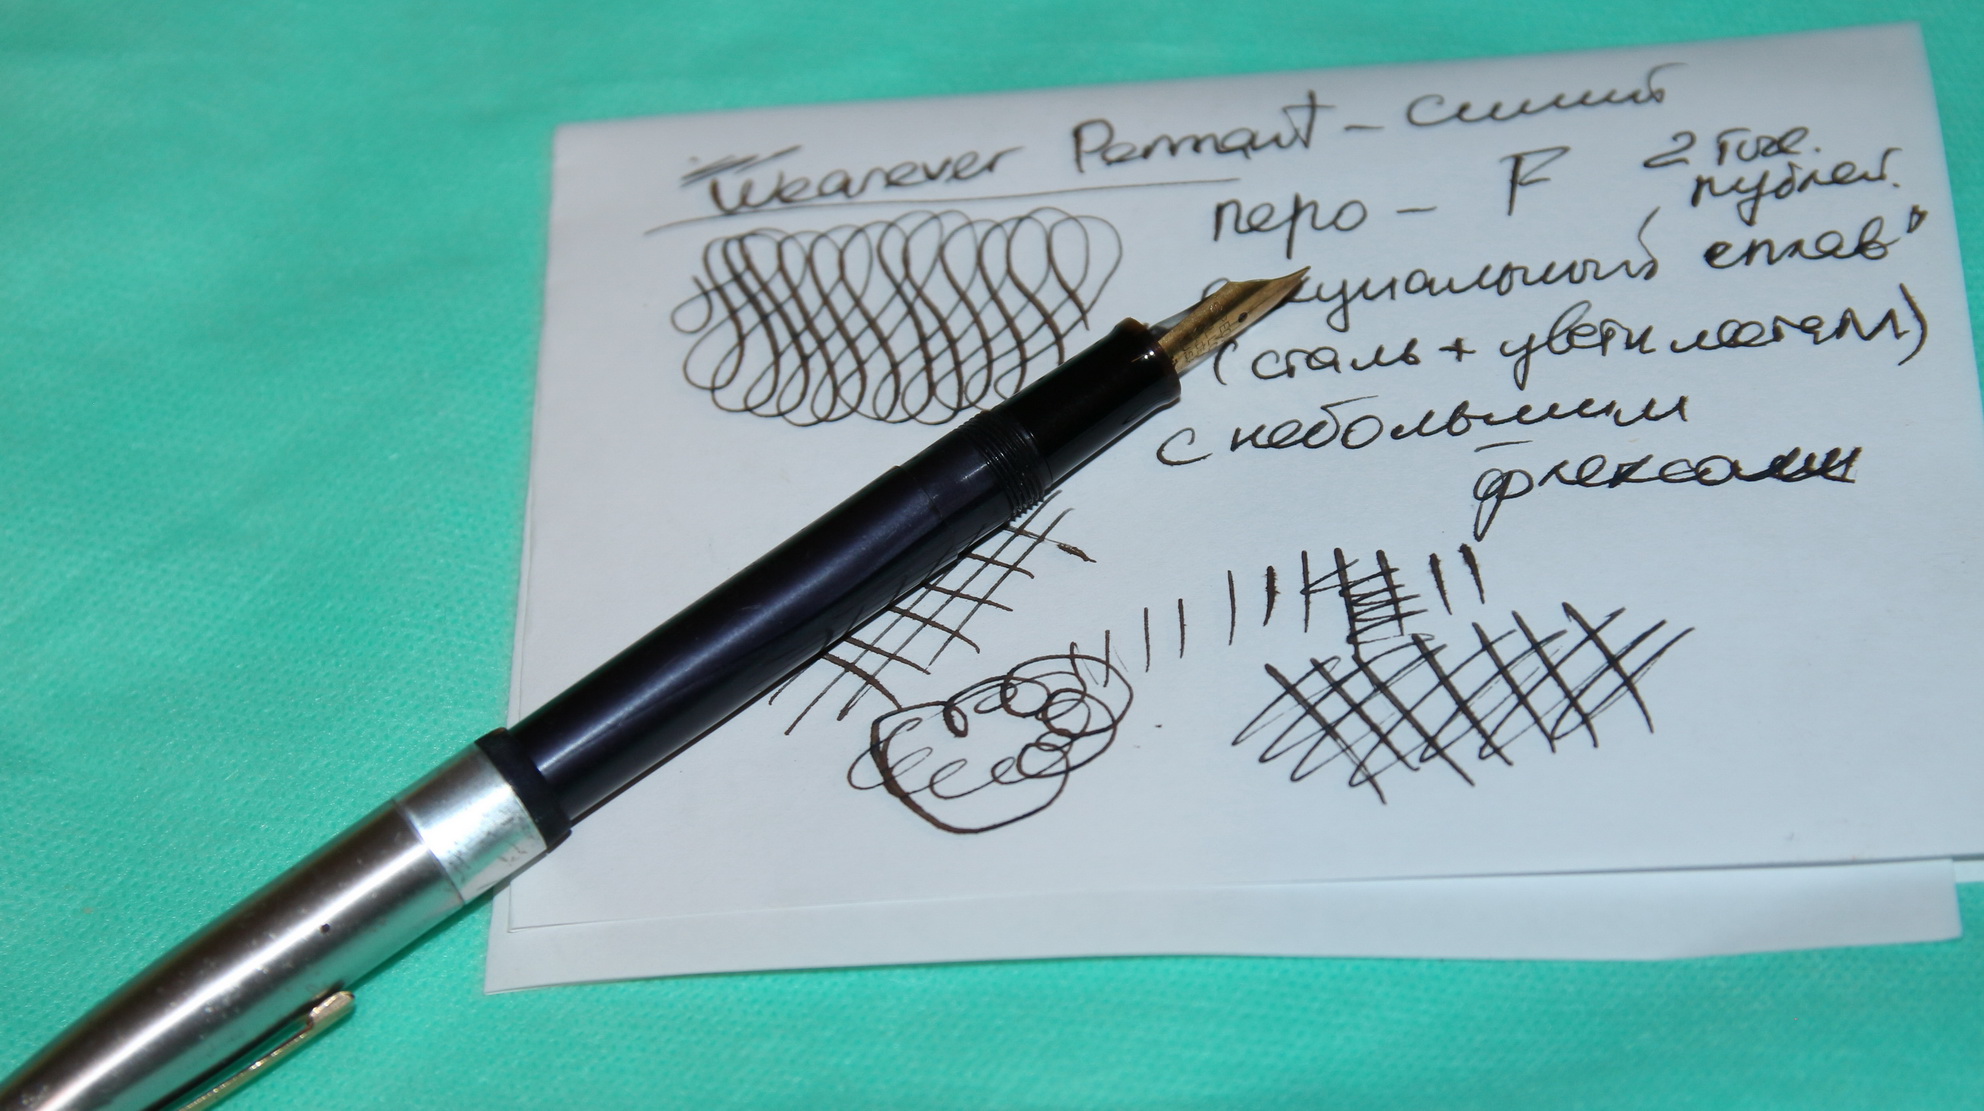 Wearever Pennant - синий
перо - F 2 тыс. рублей.
сплав"
(сталь + цветн металл)
с небольшим
флексом